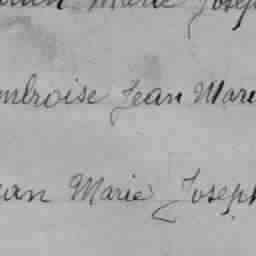 Marie Joseph
mbroise Jean Mari
ean Marie Joseph